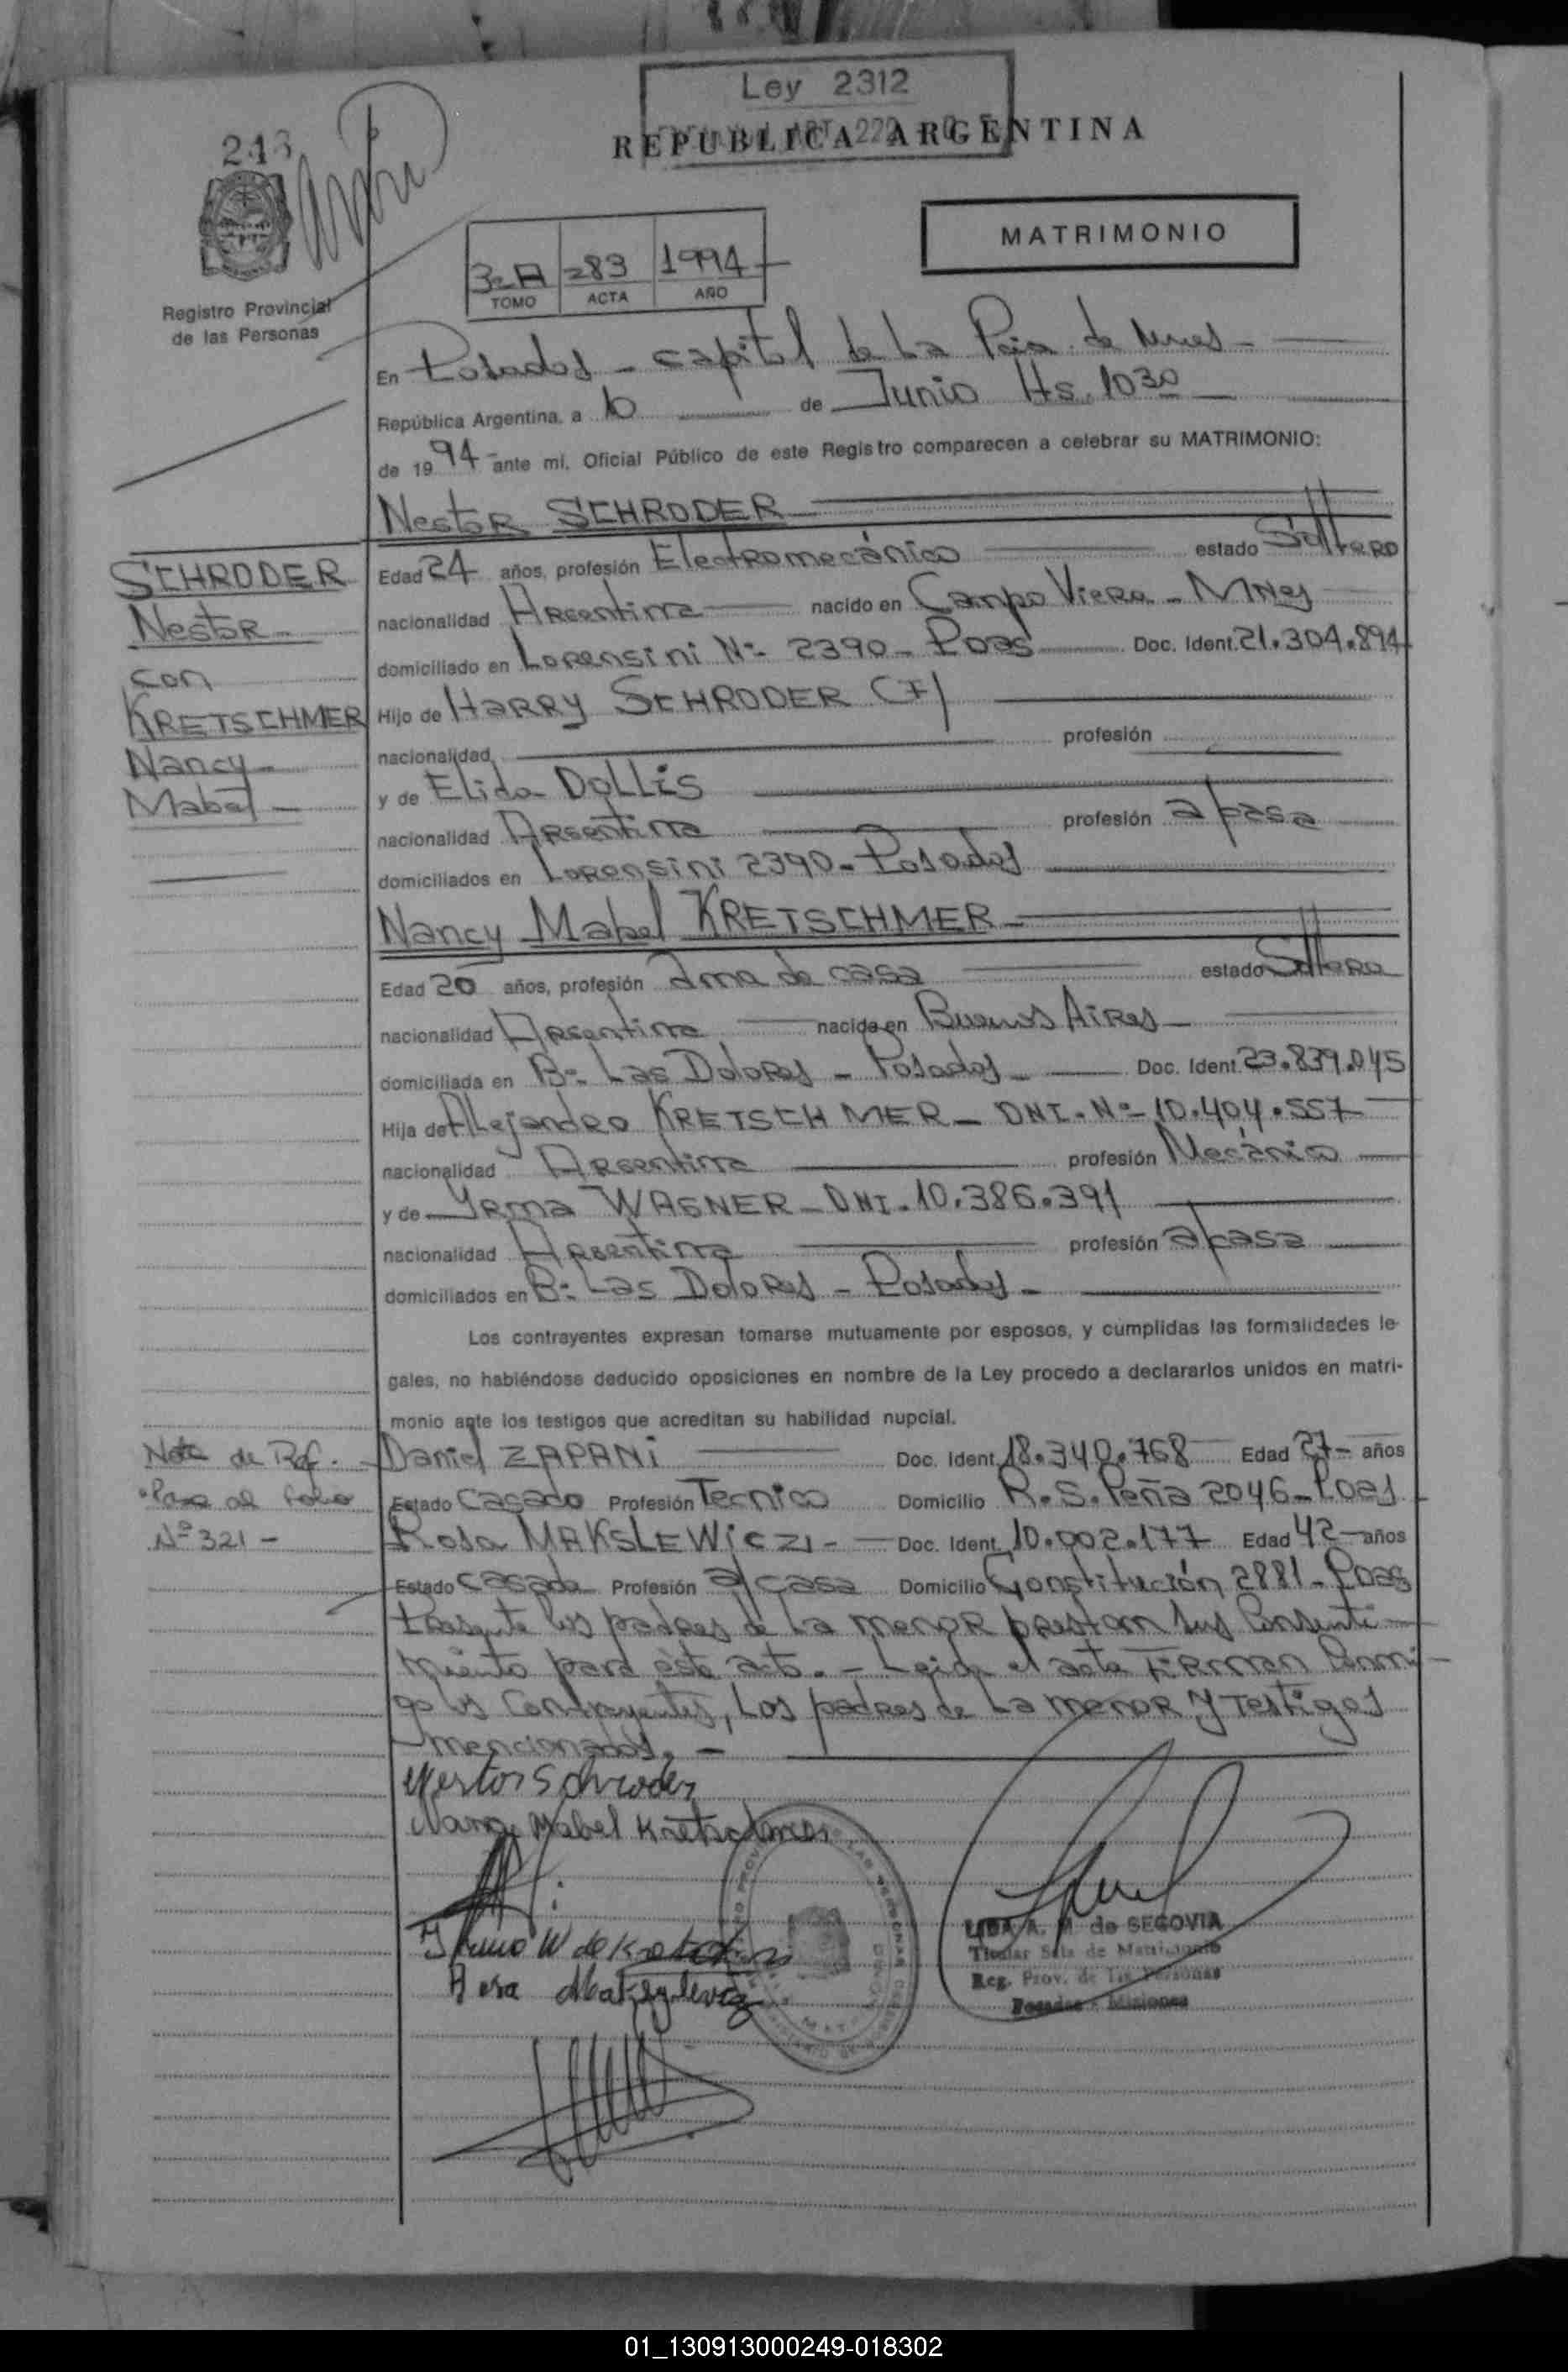 Ley 2312
REPUBLICA ARGENTINA
Registro Provincial
de las Personas
MATRIMONIO
283 1994
TOMO ACTA AÑO
En Posadas - capital de La Pcia. de Mnes -
República Argentina, a 10 de Junio Hs. 1030
de 1994 - ante mi, Oficial Público de este Registro comparecen a celebrar su MATRIMONIO:
Nestor SCHRODER -
SCHRODER
Nestor -
con
KRETSCHMER
Nancy -
Mabel -
Edad 24 años, profesión Electromecánico estado Soltero
nacionalidad Argentina nacido en Campo Viera - Mnes
domiciliado en Lorensini Nº 2390 - Pdas Doc. Ident. 21.304.894
Hijo de Harry SCHRODER (F)
nacionalidad profesión
y de Elida DOLLIS
nacionalidad Argentina profesión a/casa
domiciliados en Lorensini 2390 - Posadas
Nancy Mabel KRETSCHMER -
Edad 20 años, profesión Ama de casa estado Soltera
nacionalidad Argentina nacida en Buenos Aires -
domiciliada en Bº Las Dolores - Posadas - Doc. Ident. 23.839.045
Hija de Alejandro KRETSCHMER - DNI. Nº 10.404.557
nacionalidad Argentina profesión Mecánico
y de Yrma WAGNER - DNI. 10.386.391
nacionalidad Argentina profesión a/casa
domiciliados en Bº Las Dolores - Posadas -
Los contrayentes expresan tomarse mutuamente por esposos, y cumplidas las formalidades le-
gales, no habiéndose deducido oposiciones en nombre de la Ley procedo a declararlos unidos en matri-
monio ante los testigos que acreditan su habilidad nupcial.
Nota de Ref.
Pasa al folio
Nº 321 -
Daniel ZAPANI Doc. Ident. 18.340.768 Edad 27 - años
Estado Casado Profesión Tecnico Domicilio R. S. Peña 2046 - Pdas
Rosa MAKSLEWICZI - Doc. Ident. 10.002.177 Edad 42 - años
Estado Casada Profesión a/casa Domicilio Constitución 2881 - Pdas
Presente los padres de La menor prestam sus Consenti-
miento para este acto. - Leida el acta Firman Conmi-
go los Contrayentes, Los padres de La menor y Testigos
mencionados. -
Nestor Schroder
Nancy Mabel Kretschmer
LIDA A. M. de SEGOVIA
Titular Sala de Matrimonio
Reg. Prov. de las Personas
Posadas - Misiones
01_130913000249-018302